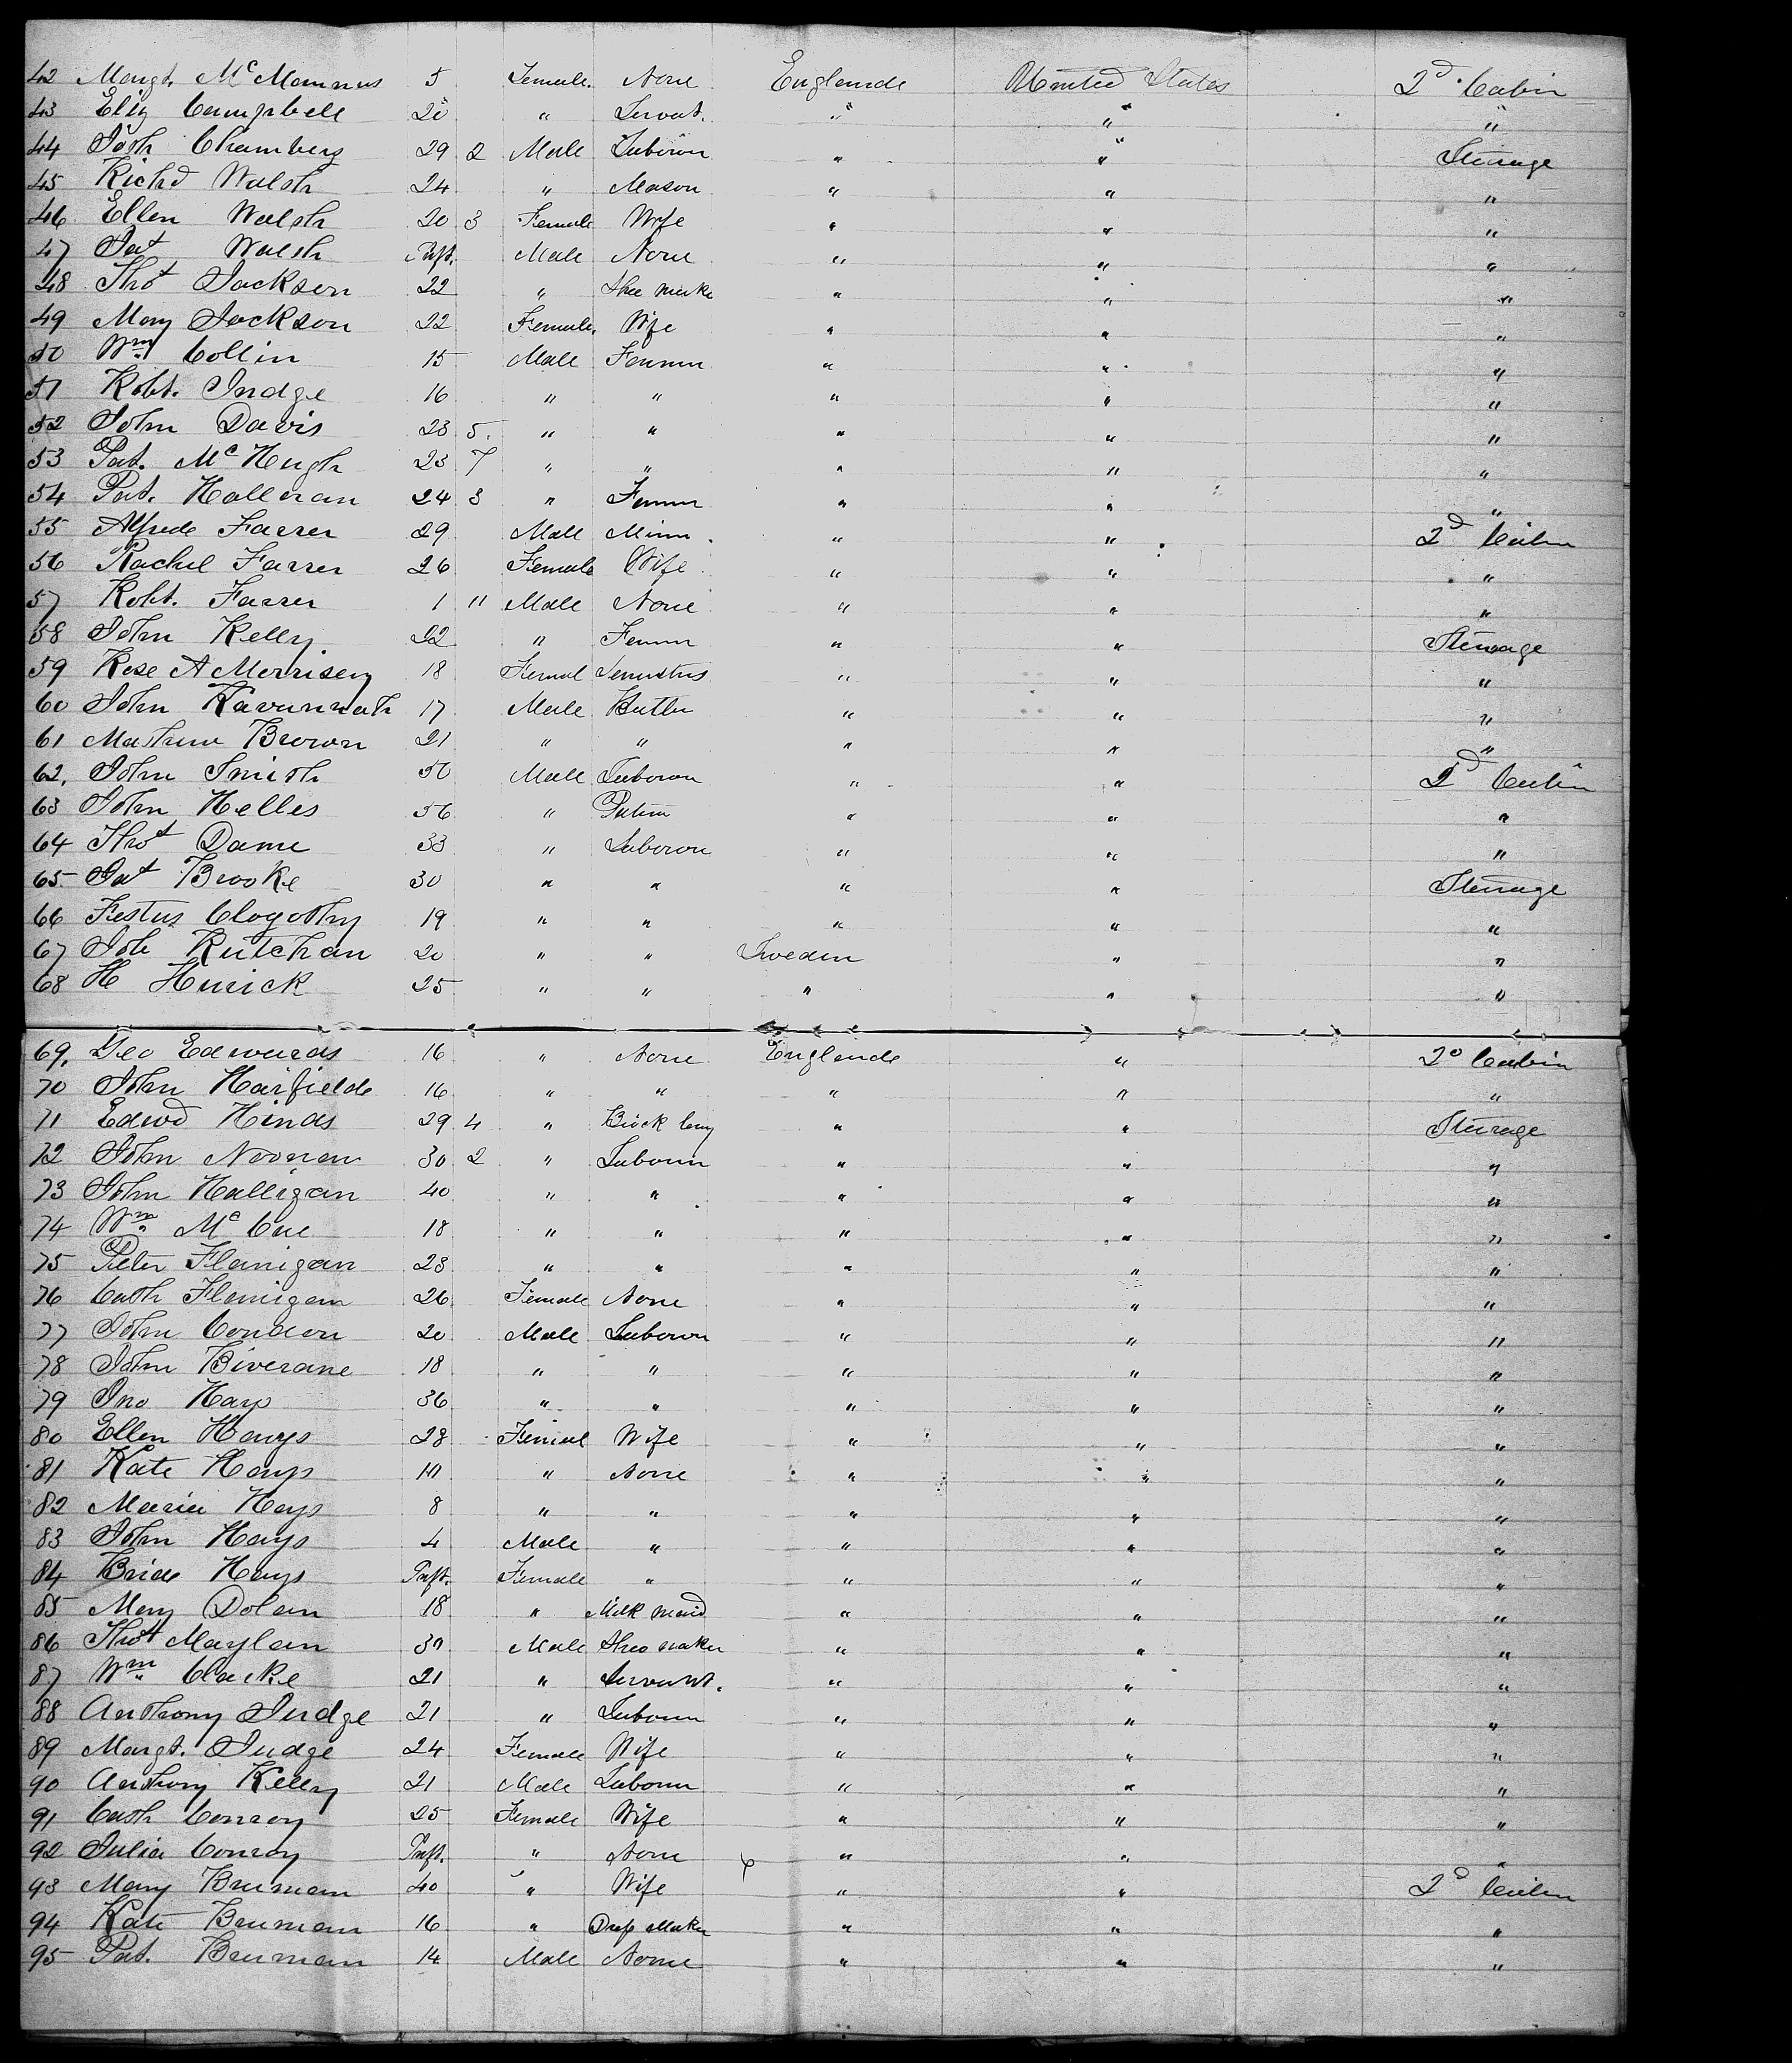 42 Margt. McMamnus 5 Female. None England United States 2d Cabin
43 Eliz Campbell 20 " Servat. " " "
44 Path Chambers 29 2 Male Labourr " " Steerage
45 Richd Walsh 24 " Mason " " "
46 Ellen Walsh 20 3 Female Wife " " "
47 Pat Walsh Inft. Male None " " "
48 Thos Jackson 22 " Shoe make " " "
49 Mary Jackson 22 Female. Wife " " "
50 Wm Collin 15 Male Farmer " " "
51 Robt. Judge 16 " " " " "
52 John Davis 23 5. " " " " "
53 Pat. McHugh 23 7 " " " " "
54 Pat. Halleran 24 3 " Farmer " " "
55 Alfred Farrer 29 Male Miner. " " 2d Cabin
56 Rachel Farrer 26 Female Wife " " "
57 Robt. Farrer 1 11 Male None " " "
58 John Kelly 22 " Farmer " " Steerage
59 Rose A Morrisey 18 Femal " " "
60 John Kavannah 17 Male Butler " " "
61 Mathew Brown 21 " " " " "
62. John Smith 50 Male Labourr " " 2d Cabin
63 John Helles 36 " " " "
64 Thos Dame 33 " Labourr " " "
65 Pat Brooke 30 " " " " Steerage
66 Festus Clogothy 19 " " " " "
67 Job Kutchan 20 " " Sweden " "
68 H Hurick 25 " " " " "
69. Geo Edwards 16 " None England " 2d Cabin
70 John Hairfield 16 " " " " "
71 Edwd Hinds 29 4 " Brick lay " " Steerage
72 John Noonan 30 2 " Labourr " " "
73 John Halligan 40 " " " " "
74 Wm McCue 18 " " " " "
75 Peter Flanigan 23 " " " " "
76 Cath Flanigan 26 Female None " " "
77 John Condon 20 Male Labourr " " "
78 John Biverane 18 " " " " "
79 Jno Hays 36 " " " " "
80 Ellen Hays 28 Femal Wife " " "
81 Kate Hays 10 " None " " "
82 Maria Hays 8 " " " " "
83 John Hays 4 Male " " " "
84 Brid Hays Inft. Female " " " "
85 Mary Dolan 18 " Milk maid " " "
86 Thos Maylan 30 Male Shoe maker " " "
87 Wm Clarke 21 " Servant. " " "
88 Anthony Judge 21 " Labourr " " "
89 Margt. Judge 24 Female Wife " " "
90 Anthony Kelly 21 Male Labourr " " "
91 Cath Conroy 25 Female Wife " " "
92 Julia Conroy Inft. " None " " "
93 Mary Brennan 40 " Wife " " 2d Cabin
94 Kate Brennan 16 " Dress Maker " " "
95 Pat. Brennan 14 Male None " " "